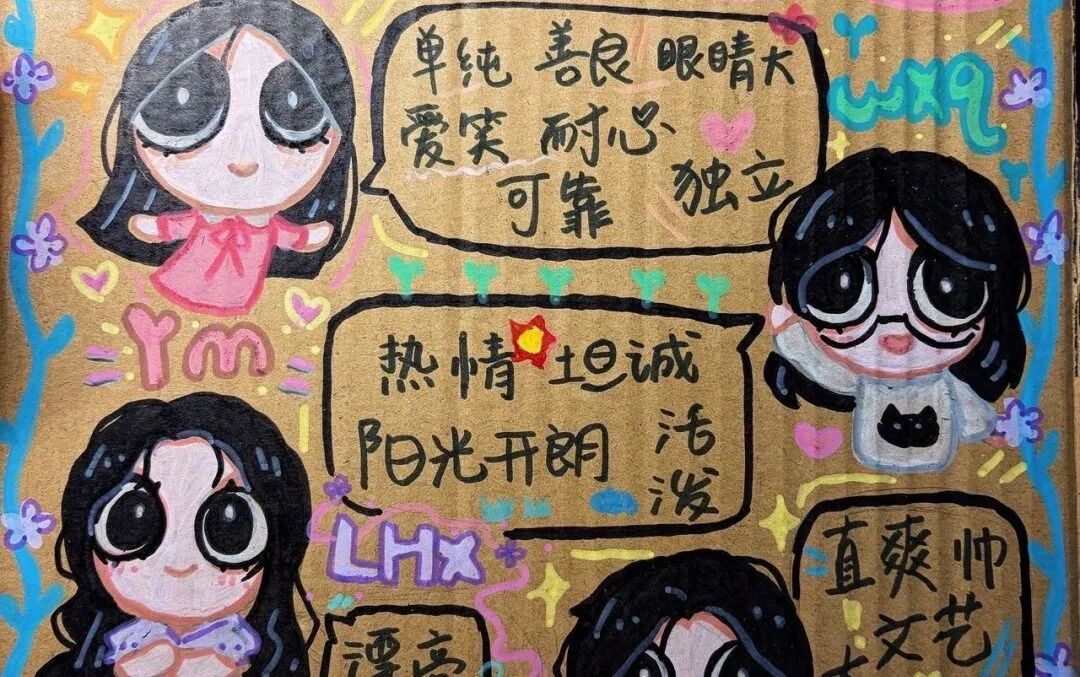 单纯 善良 眼睛大
爱笑 耐心
可靠 独立
wxq
Ym
热情 坦诚
阳光开朗 活泼
LHx
直爽 帅
文艺
漂亮